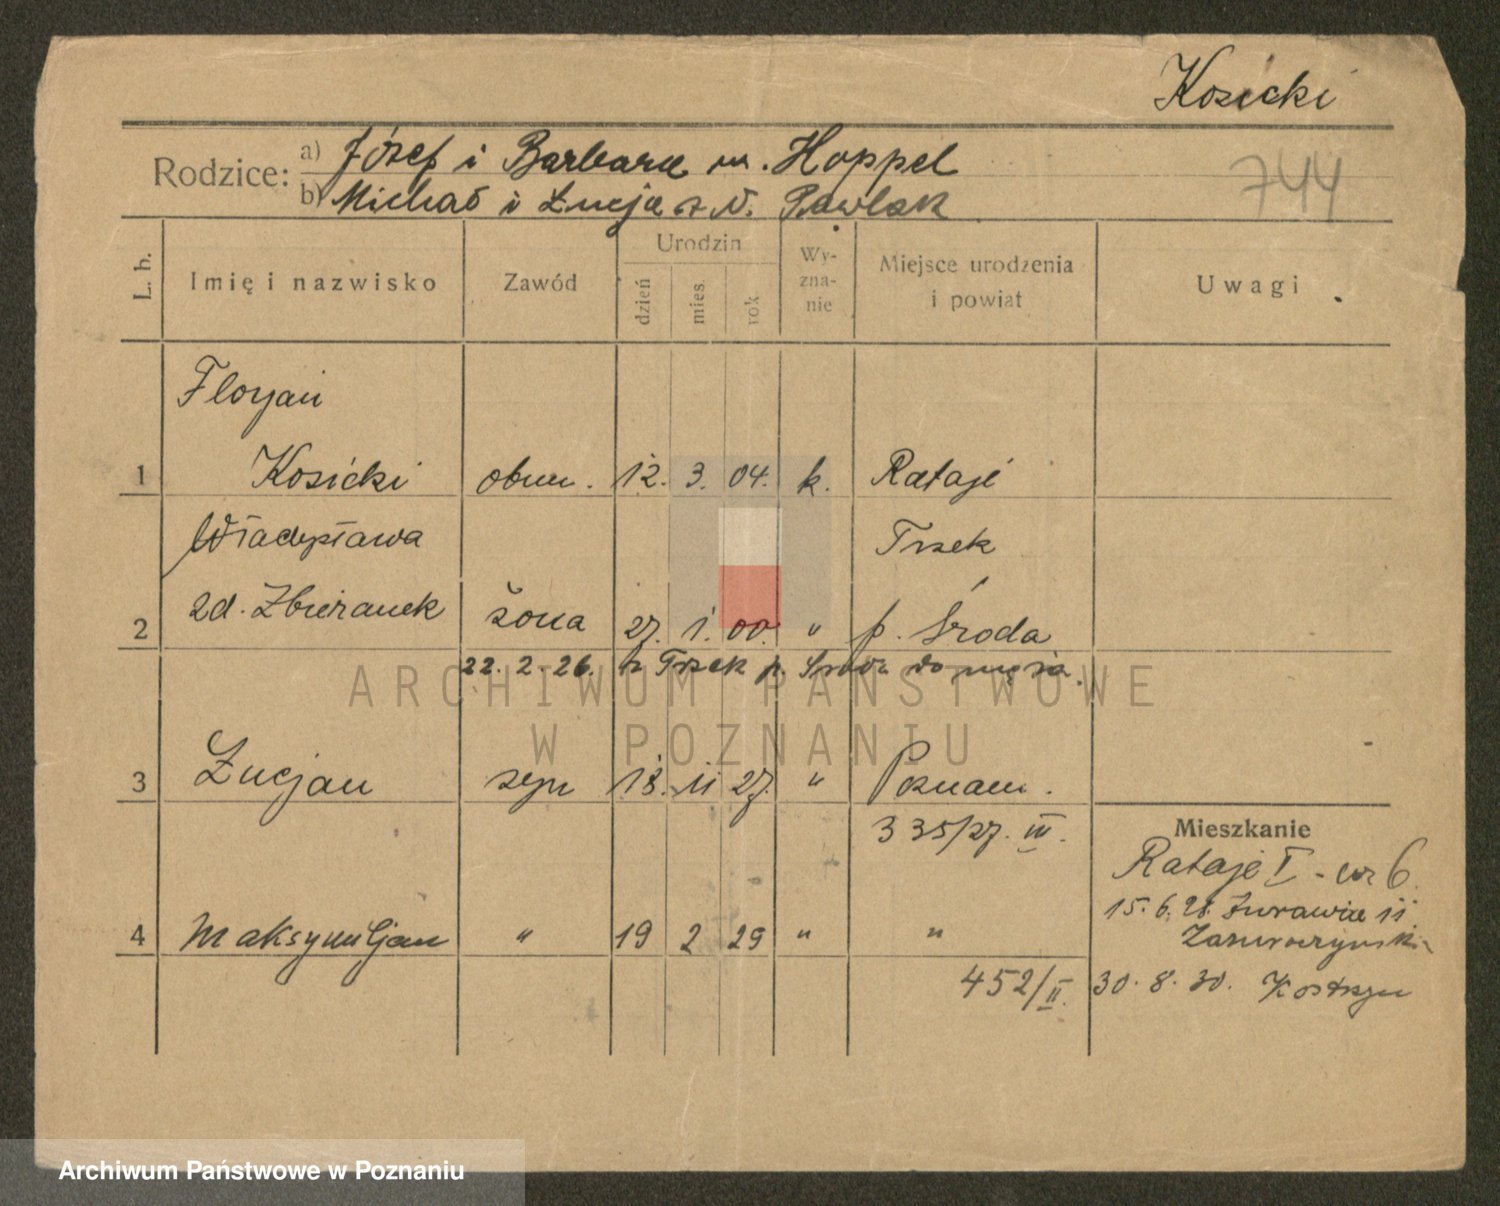 Kosicki
Rodzice: a) Józef i Barbara Hoppel
b) Michał i Łucja z d. Pawlak
744
L. b. Imię i nazwisko Zawód Urodzin Wyznanie Miejsce urodzenia i powiat Uwagi
dzień mies. rok
Florjan
1 Kosicki 12. 3. 04. k. Rataje
Władysława Trzek
2 zd. Zbieranek żona 27. 1. 00. " p. Środa
22. 2. 26. z Trzek p. Środa do męża.
ARCHIWUM PAŃSTWOWE
W POZNANIU
3 Łucjan syn 18. 11 27. " Poznań.
335/27. III.
Mieszkanie
Rataje I - nr 6.
15. 6. 28. 11
4 Maksymiljan " 19 2 29 " "
452/II. 30. 8. 30. Kostrzyn
Archiwum Państwowe w Poznaniu